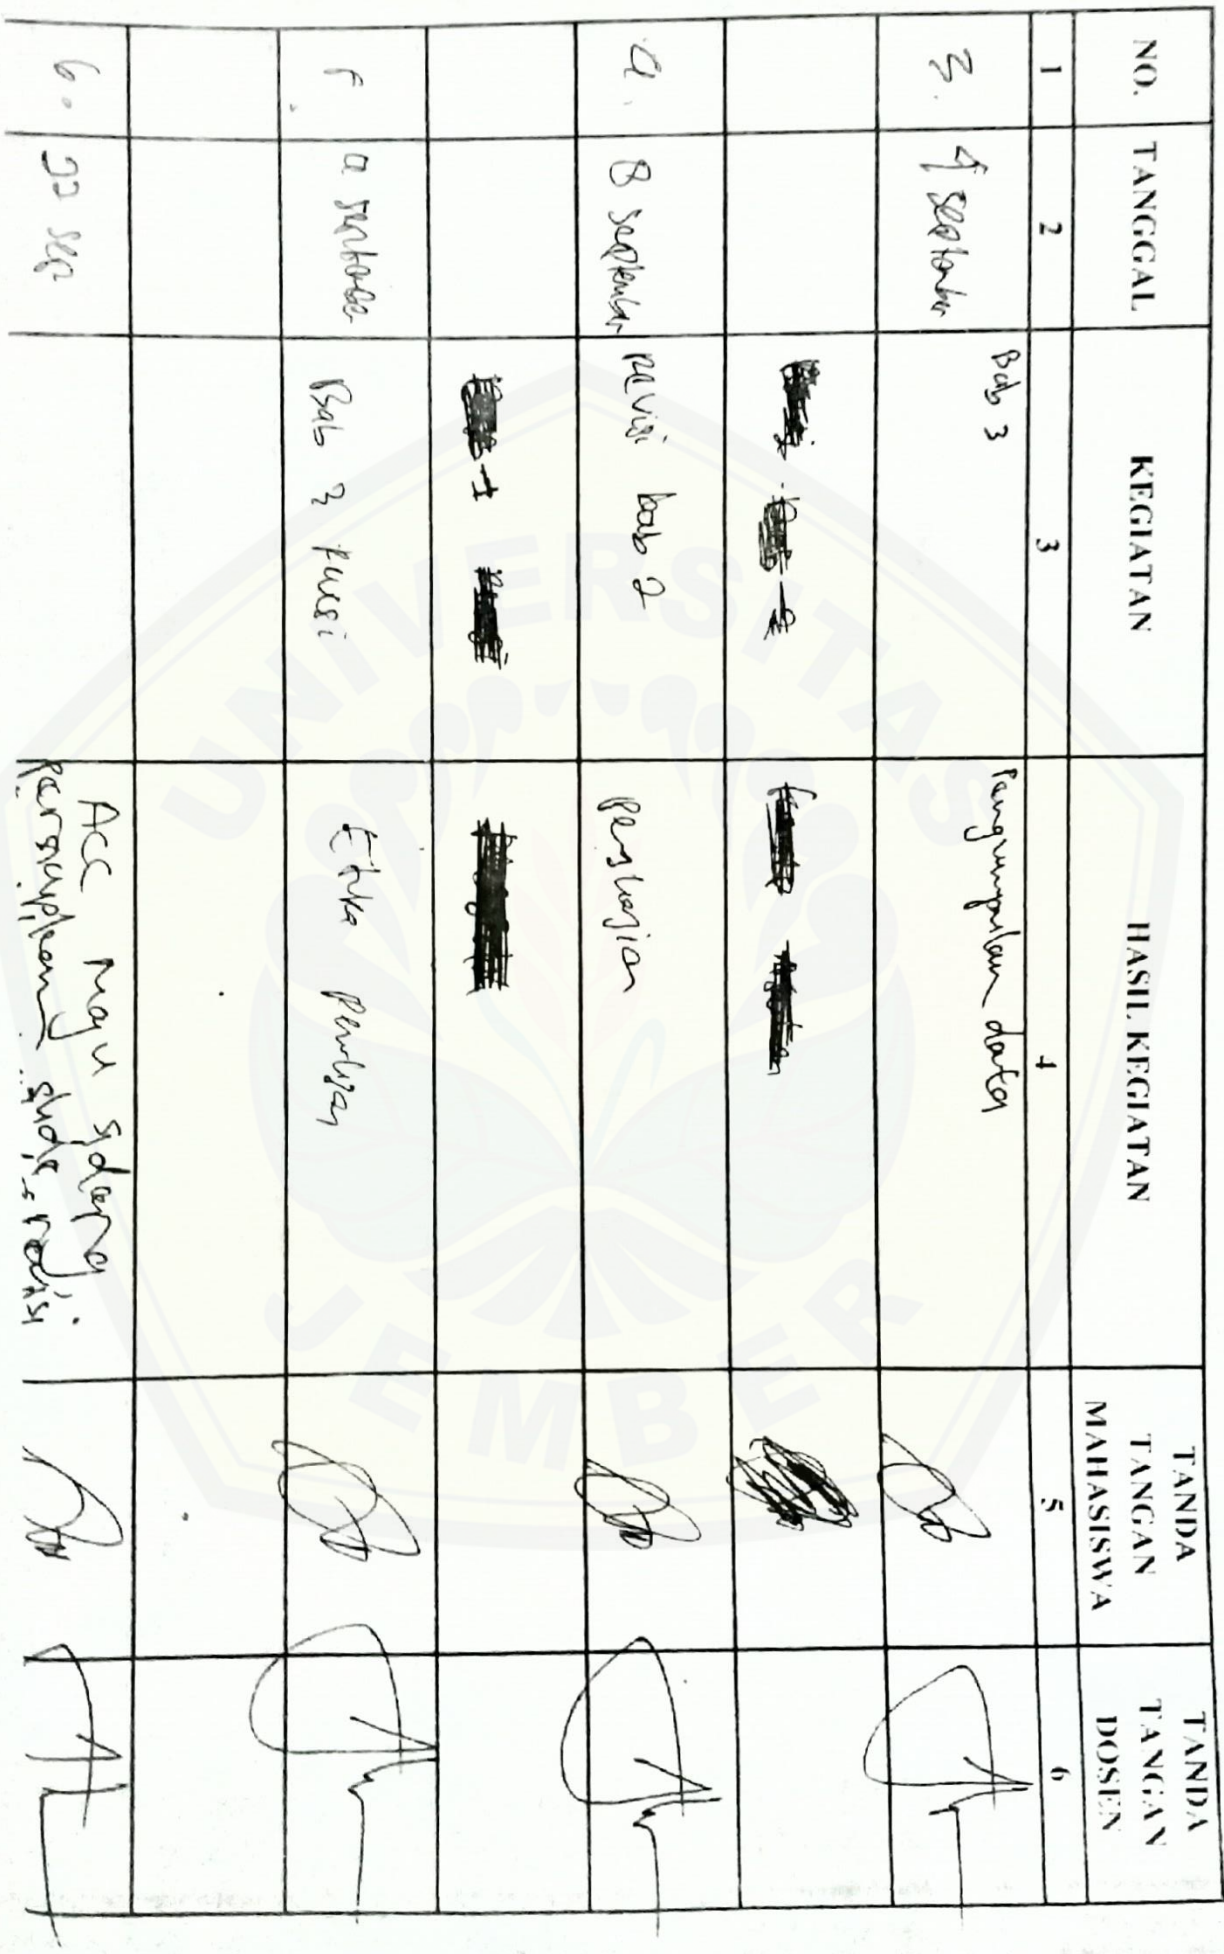 NO. TANGGAL KEGIATAN HASIL KEGIATAN TANDA TANGAN MAHASISWA TANDA TANGAN DOSEN
1 2 3 4 5 6
3. 4 september Bab 3 Pengumpulan data
4. 8 september revisi bab 2 pengkajian
Bab 3 revisi Etika
6. 22 sep ACC Maju sidang
persiapkan slide revisi
UNIVERSITAS
JEMBER